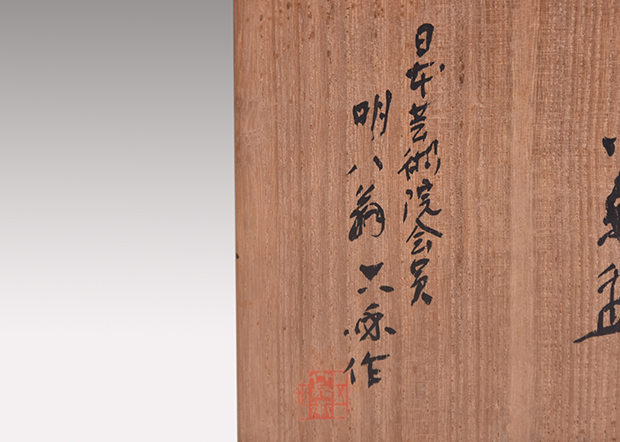 日本芸術院会員
明八翁 六和作